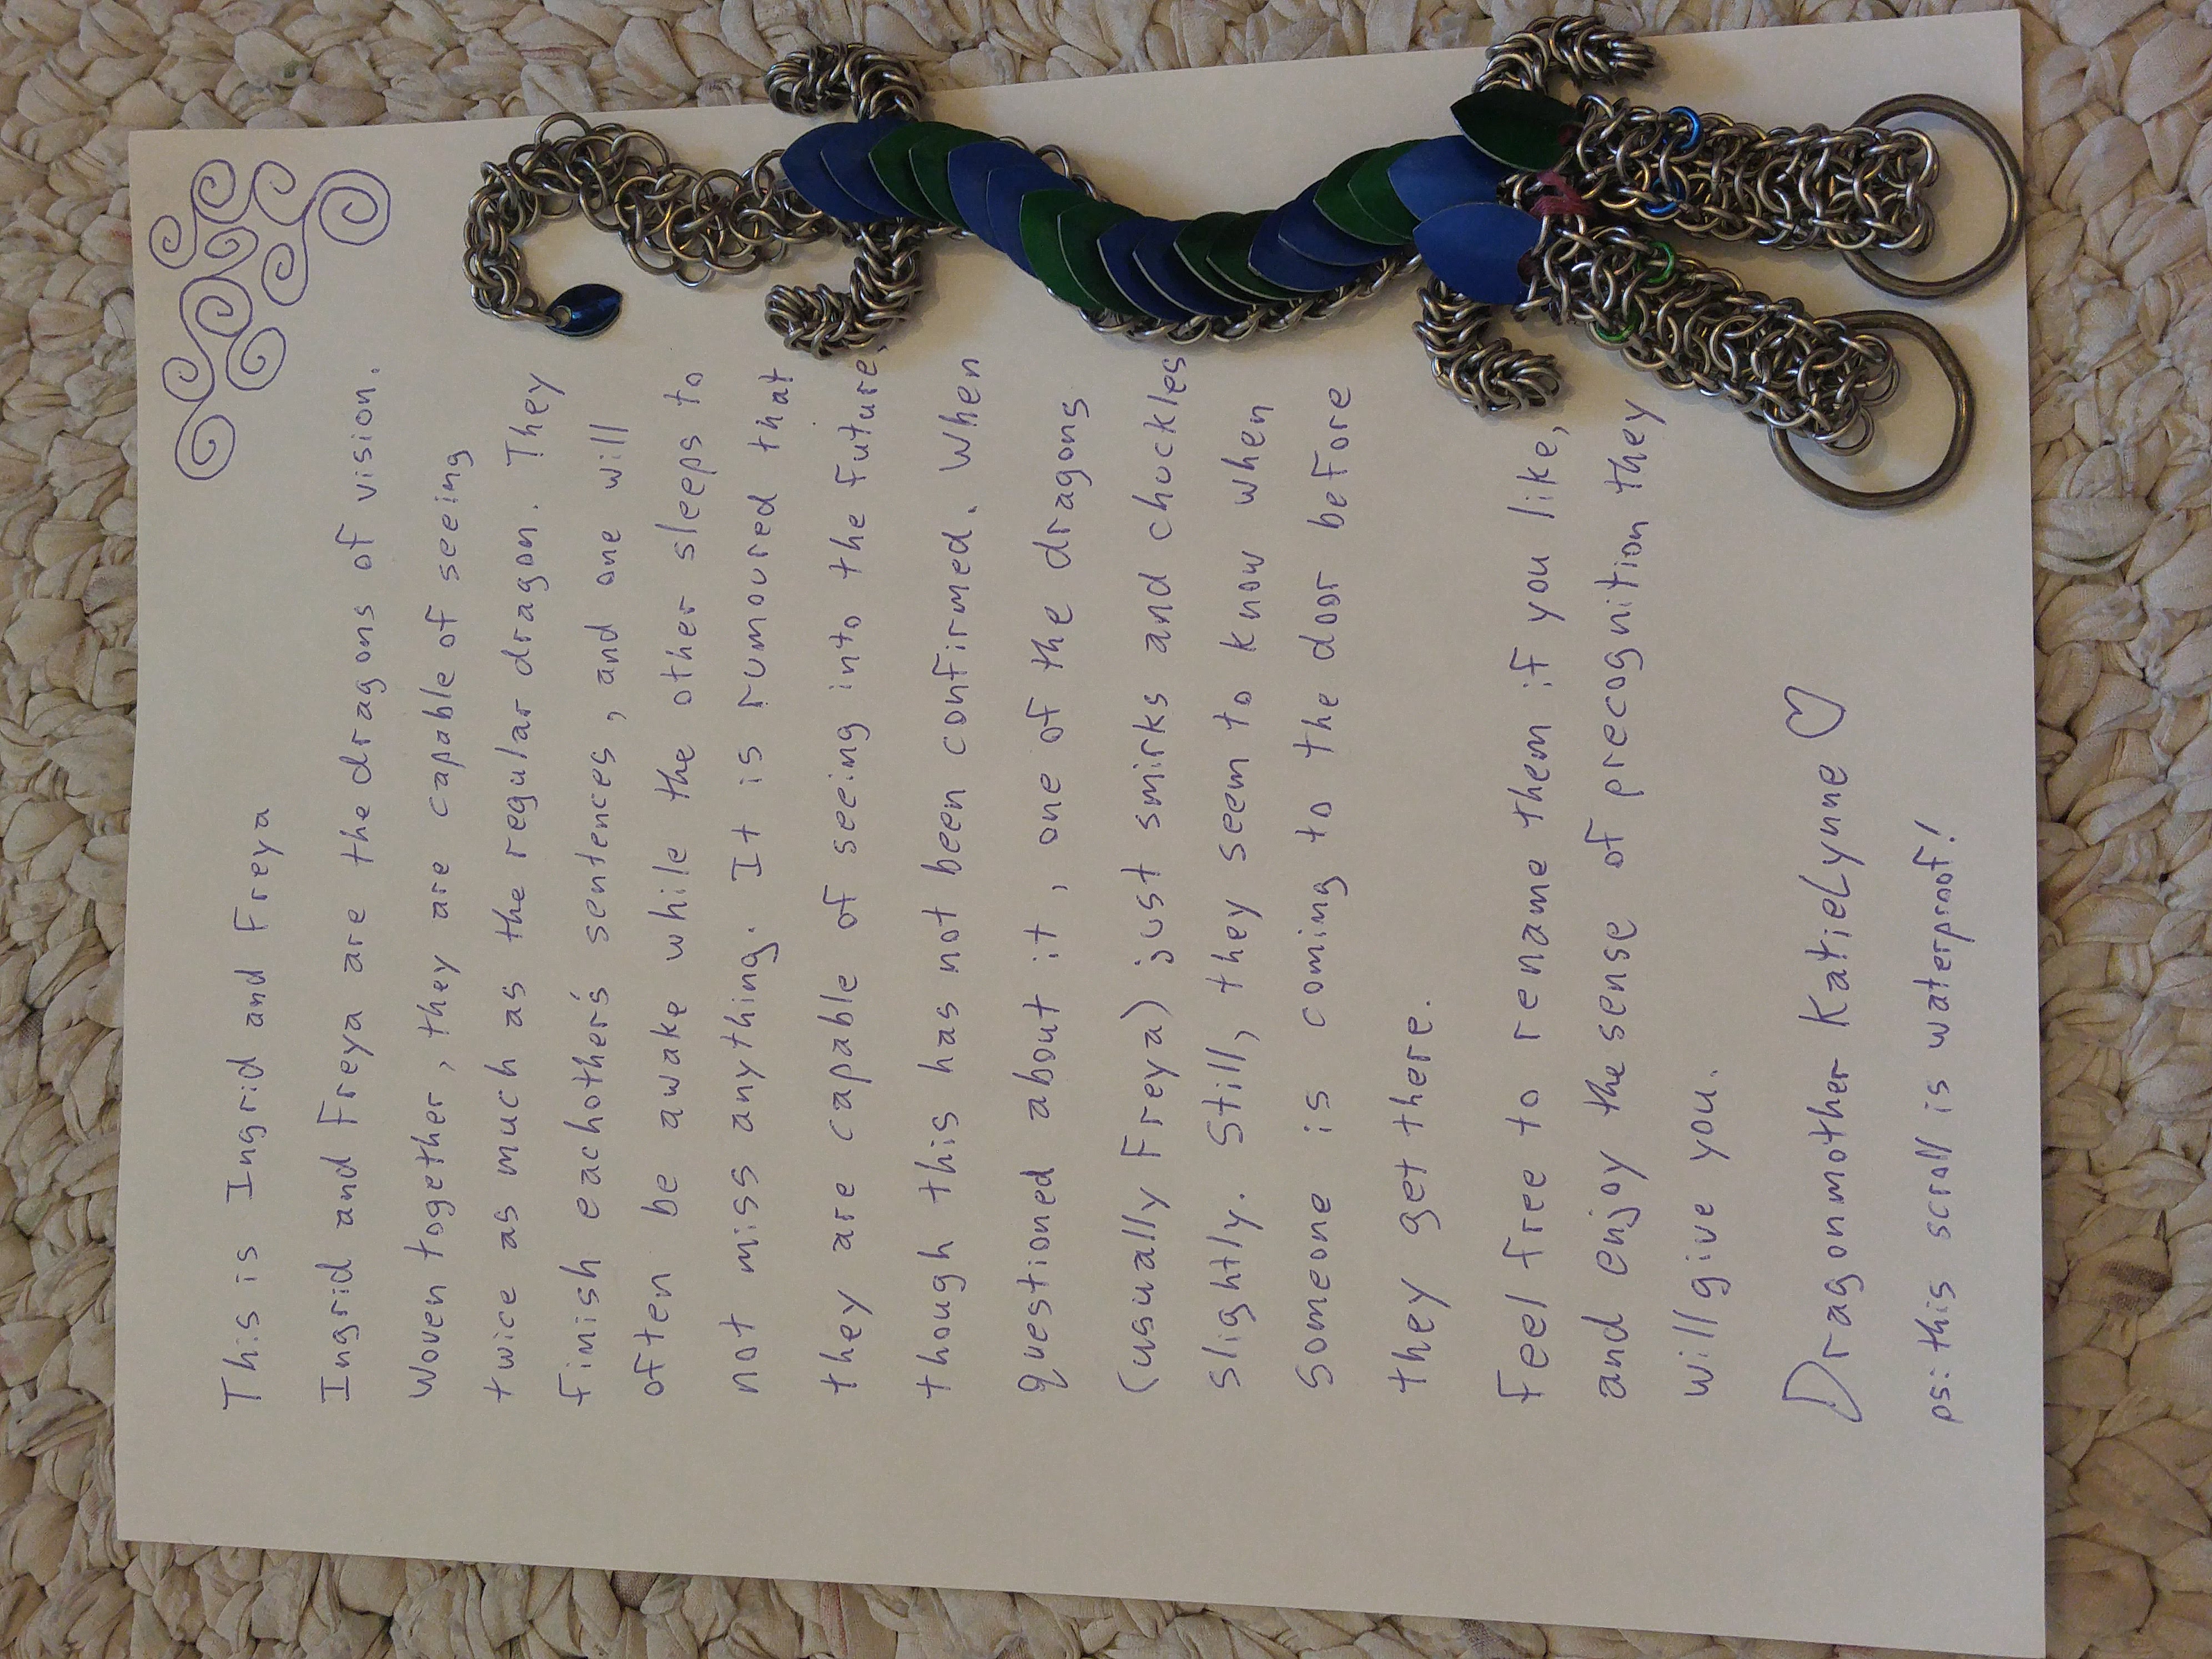 This is Ingrid and Freya
Ingrid and Freya are the dragons of vision.
Woven together, they are capable of seeing
twice as much as the regular dragon. They
finish eachother's sentences, and one will
often be awake while the other sleeps to
not miss anything. It is rumoured that
they are capable of seeing into the future,
though this has not been confirmed. When
questioned about it, one of the dragons
(usually Freya) just smirks and chuckles
slightly. Still, they seem to know when
someone is coming to the door before
they get there.
Feel free to rename them if you like,
and enjoy the sense of precognition they
will give you.
Dragonmother KatieLynne ♡
ps: this scroll is waterproof!